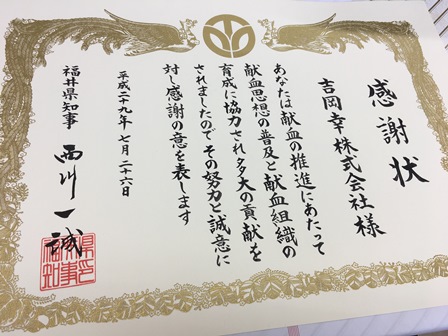 感謝状
吉岡幸株式会社様
あなたは献血の推進にあたって
献血思想の普及と献血組織の
育成に協力され多大の貢献を
されましたのでその努力と誠意に
対し感謝の意を表します
平成二十九年七月二十六日
福井県知事 西川一誠